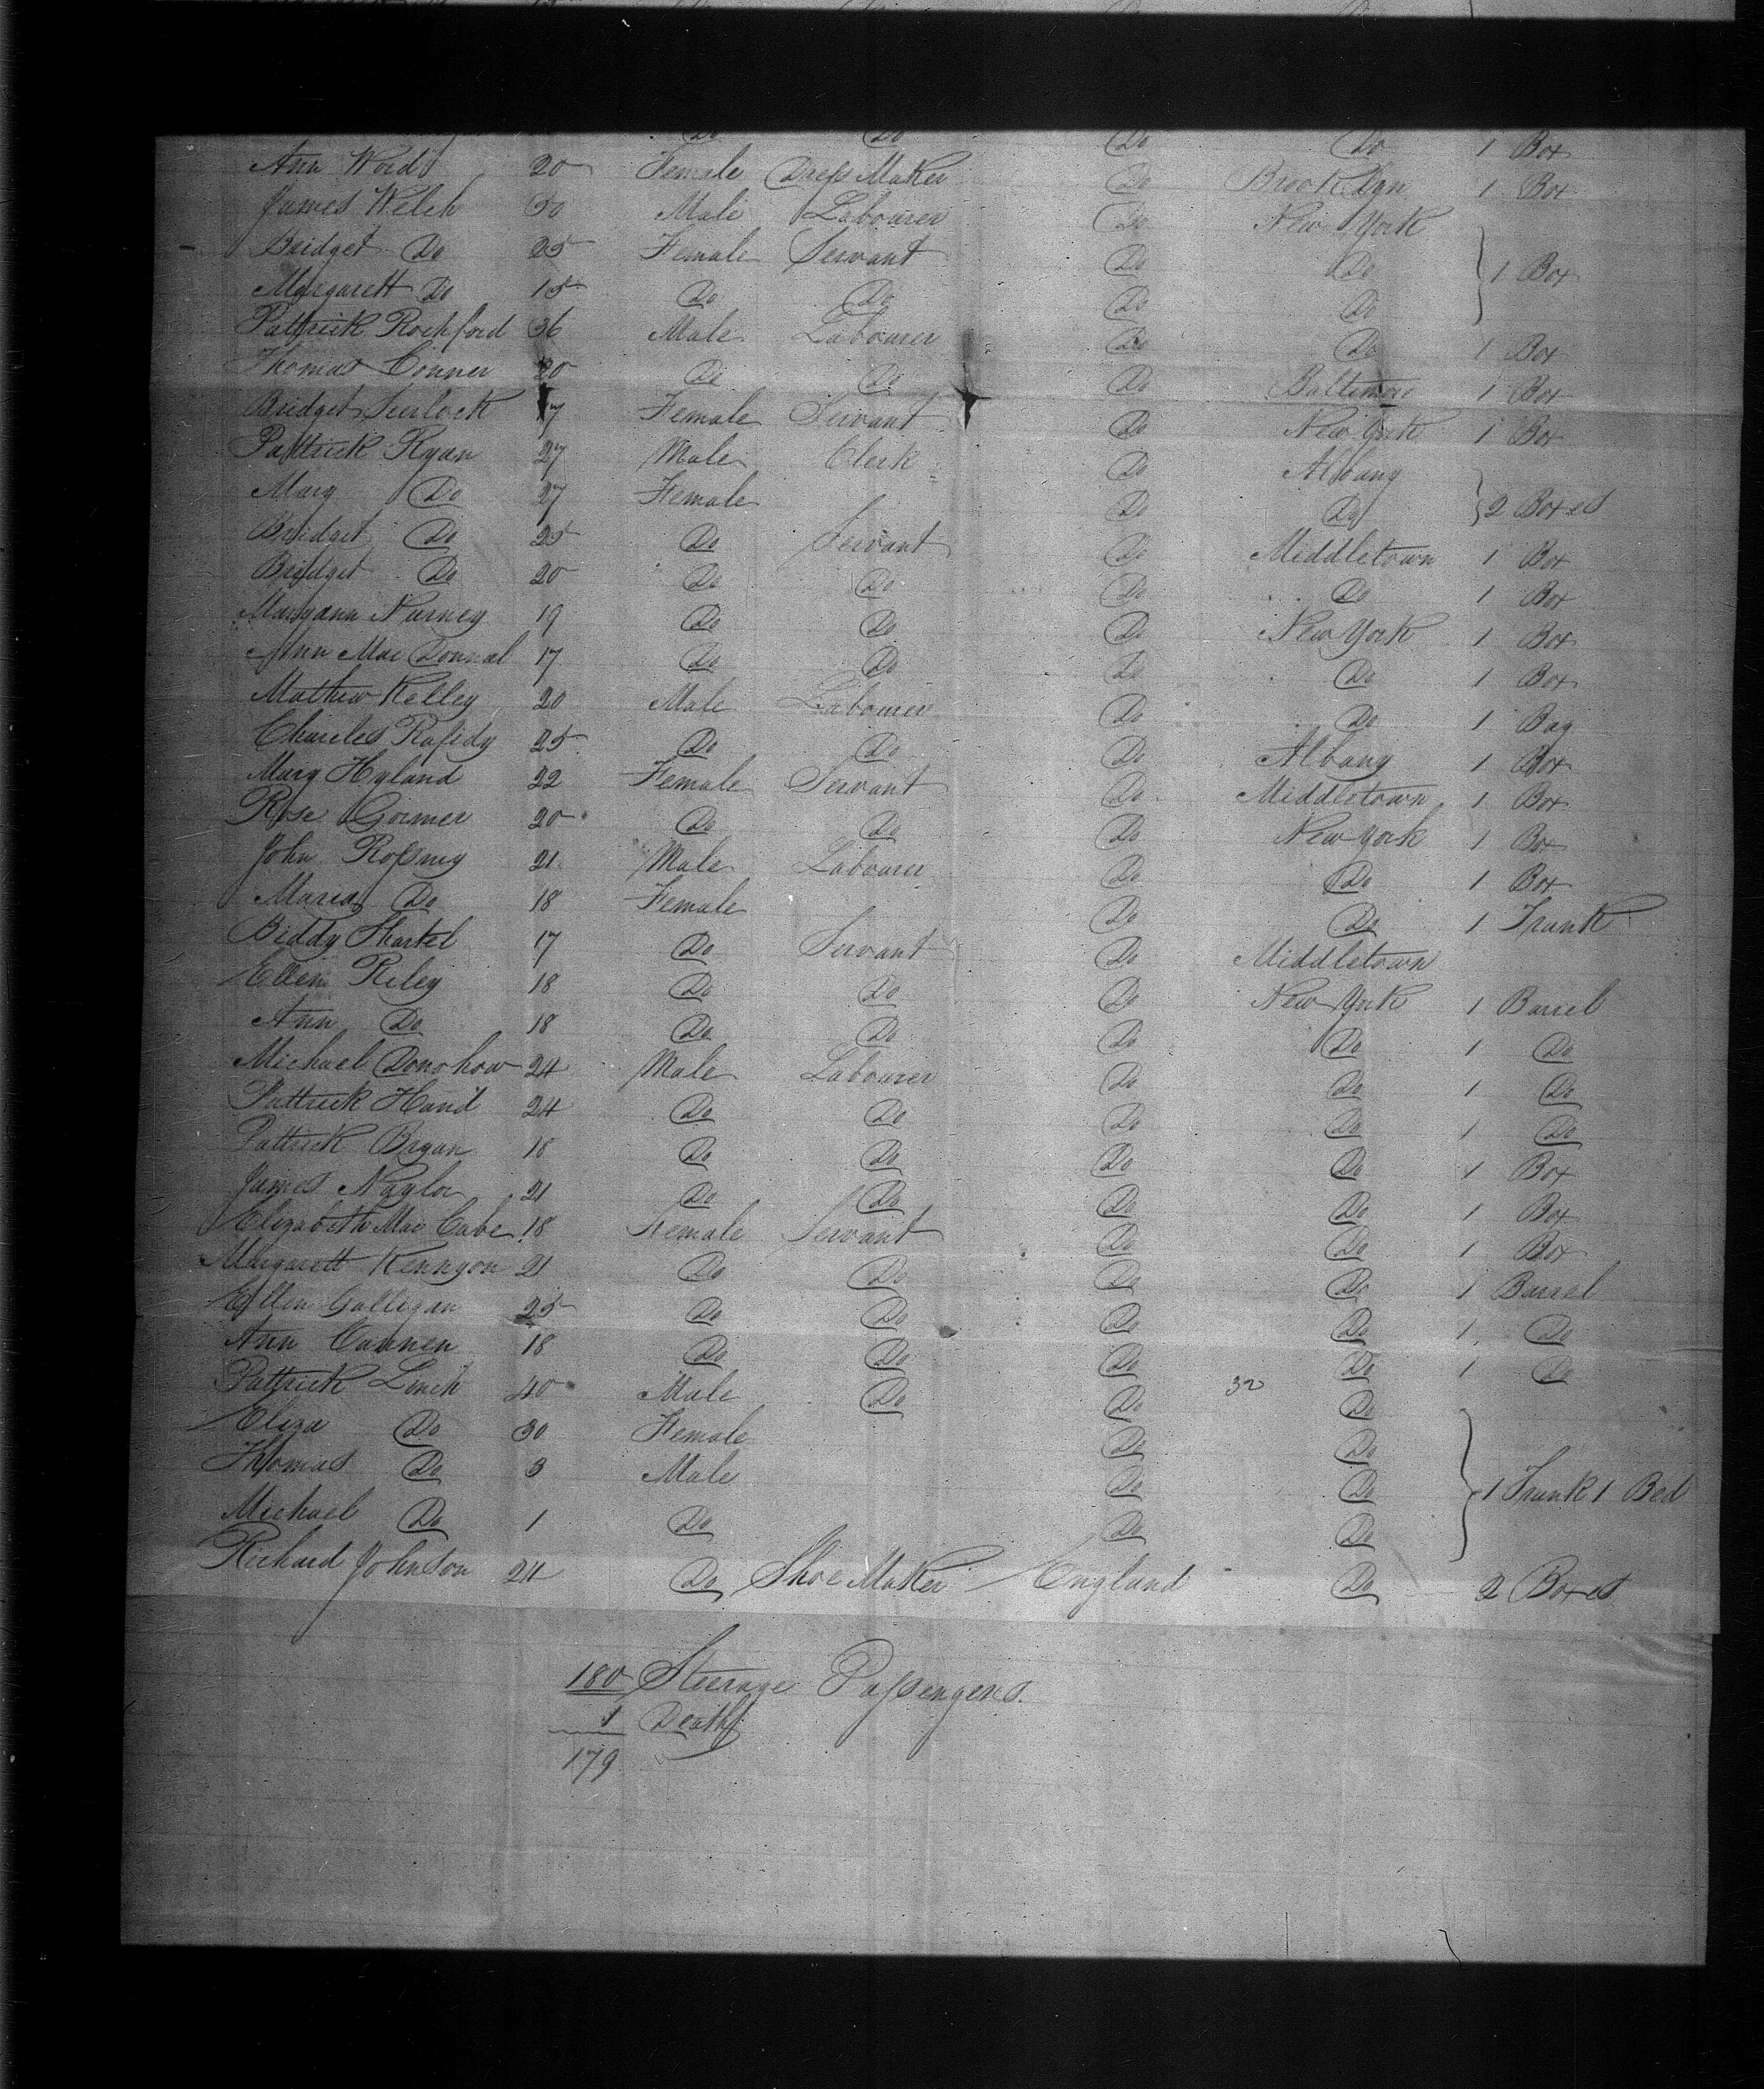 Do Do Do Do 1 Box
Ann Word 20 Female Dress Maker Do Brooklyn 1 Box
James Welch 30 Male Labourer Do New York
Bridget Do 25 Female Servant Do Do } 1 Box
Margarett Do 15 Do Do Do Do
Pattrick Rochford 36 Male Labourer Do Do 1 Box
Thomas Conner 20 Do Do Do Baltimore 1 Box
Bridget Surlock 17 Female Servant Do New York 1 Box
Pattrick Ryan 27 Male Clerk Do Albany
Mary Do 27 Female Do Do } 2 Boxes
Bridget Do 25 Do Servant Do Middletown 1 Box
Bridget Do 20 Do Do Do Do 1 Box
Maryann Narney 19 Do Do Do New York 1 Box
Ann Mac Donnal 17 Do Do Do Do 1 Box
Mathew Kelley 20 Male Labourer Do Do 1 Bag
Charles Rafidy 25 Do Do Do Albany 1 Box
Mary Hyland 22 Female Servant Do Middletown 1 Box
Rose Gormer 20 Do Do Do New York 1 Box
John 21 Male Labourer Do Do 1 Box
Maria Do 18 Female Do Do 1 Trunk
Biddy Shartel 17 Do Servant Do Middletown
Ellen Riley 18 Do Do Do New York 1 Barrel
Ann Do 18 Do Do Do Do 1 Do
Michael Donohow 24 Male Labourer Do Do 1 Do
Pattrick Hand 24 Do Do Do Do 1 Do
Pattrick Bryan 18 Do Do Do Do 1 Box
James Naylor 21 Do Do Do Do 1 Box
Elizabeth Mac Cabe 18 Female Servant Do Do 1 Box
Margarett Kennyon 21 Do Do Do Do 1 Barrel
Ellen Galligan 25 Do Do Do Do 1 Do
Ann Cannen 18 Do Do Do Do 1 Do
Pattrick Linch 40 Male Do Do 32 Do
Eliza Do 30 Female Do Do
Thomas Do 3 Male Do Do } 1 Trunk 1 Bed
Michael Do 1 Do Do Do
Richard Johnson 24 Do Shoe Maker England Do 2 Boxes
180 Steerage Passengers.
1 Death
179 "